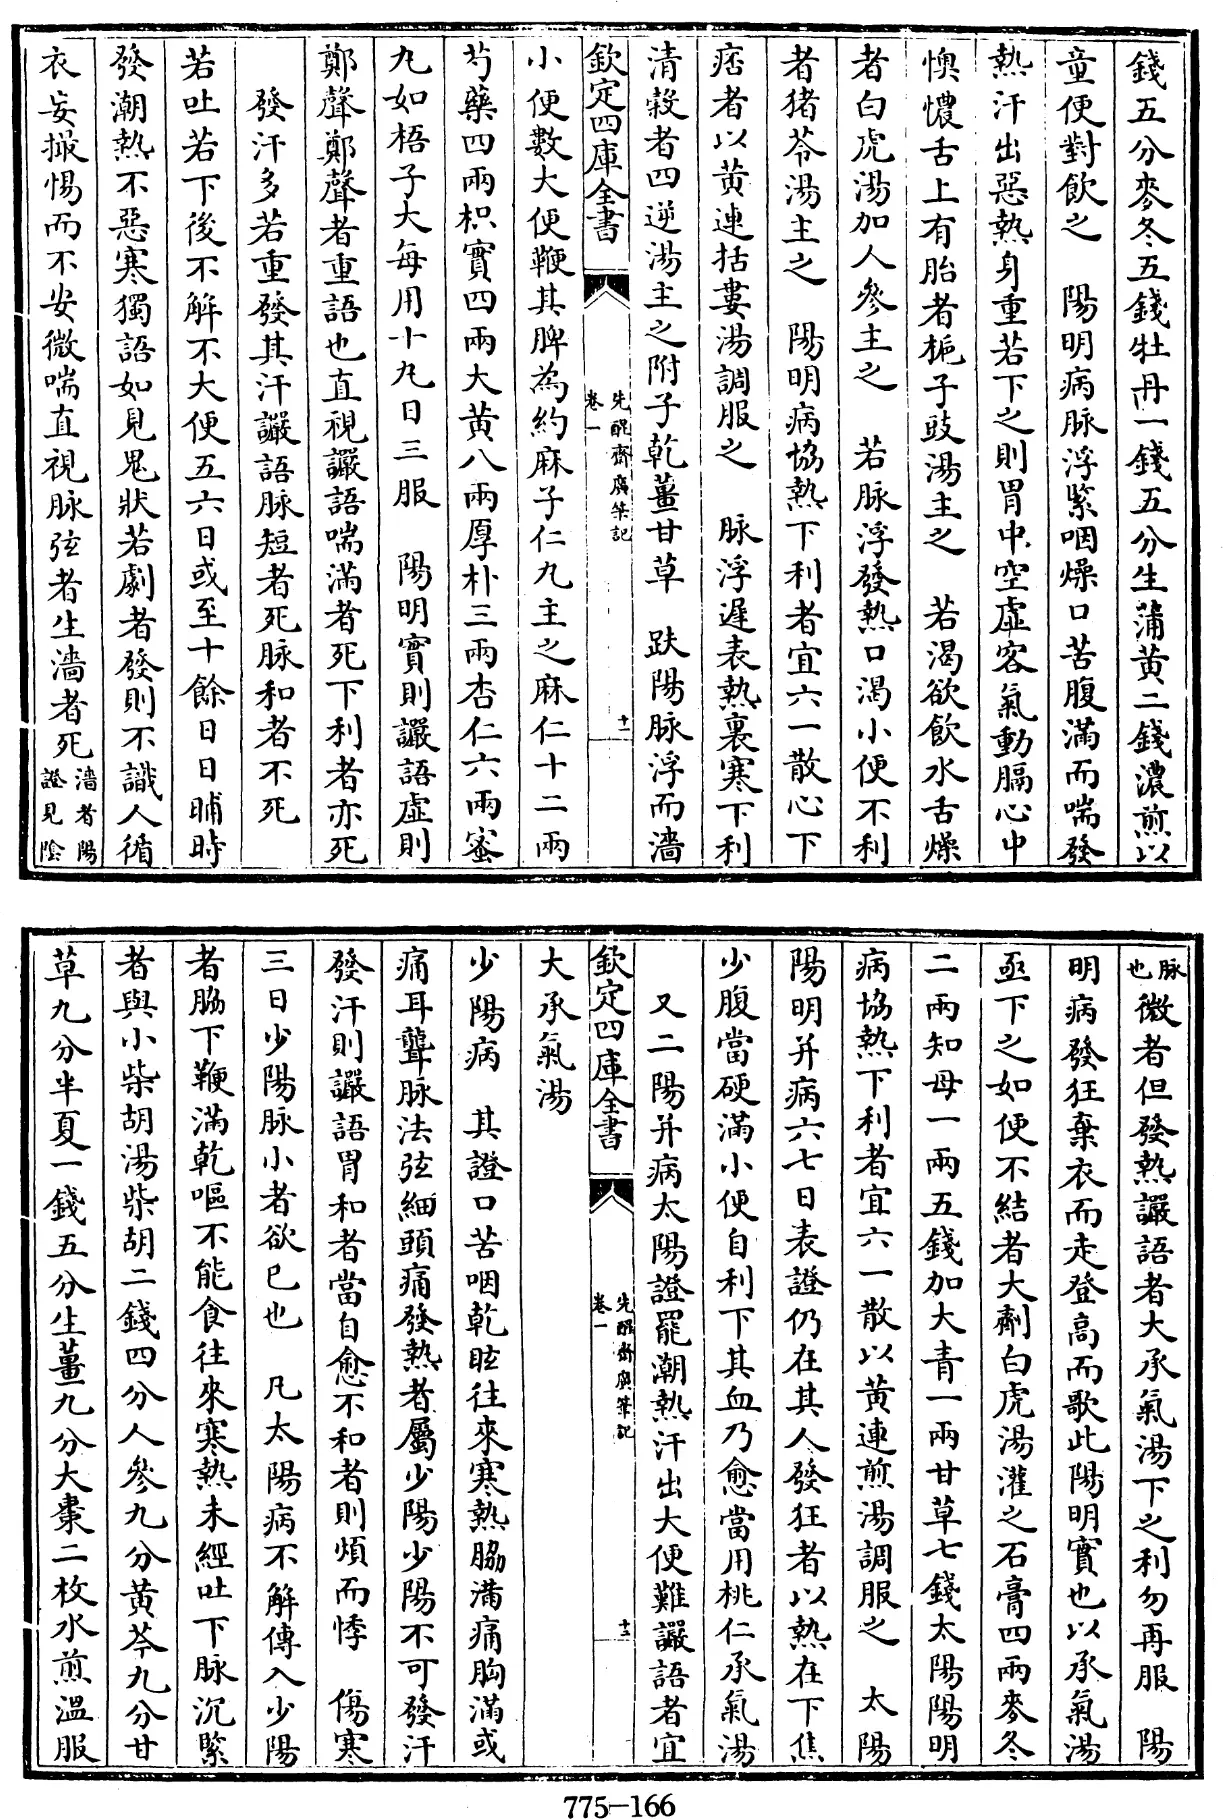 錢五分麥冬五錢牡丹一錢五分生蒲黃二錢濃煎以
童便對飲之　陽明病脉浮緊咽燥口苦腹滿而喘發
熱汗出惡熱身重若下之則胃中空虛客氣動膈心中
懊憹舌上有胎者梔子豉湯主之　若渴欲飲水舌燥
者白虎湯加人參主之　若脉浮發熱口渴小便不利
者猪苓湯主之　陽明病協熱下利者宜六一散心下
痞者以黃連括蔞湯調服之　脉浮遲表熱裏寒下利
清穀者四逆湯主之附子乾薑甘草　趺陽脉浮而濇
欽定四庫全書
先醒齋廣筆記
卷一
十一
小便數大便鞕其脾為約麻子仁丸主之麻仁十二兩
芍藥四兩枳實四兩大黃八兩厚朴三兩杏仁六兩蜜
丸如梧子大每用十丸日三服　陽明實則讝語虛則
鄭聲鄭聲者重語也直視讝語喘滿者死下利者亦死
發汗多若重發其汗讝語脉短者死脉和者不死
若吐若下後不解不大便五六日或至十餘日日晡時
發潮熱不惡寒獨語如見鬼狀若劇者發則不識人循
衣妄撮惕而不安微喘直視脉弦者生濇者死濇者陽
證見陰
脉
也微者但發熱讝語者大承氣湯下之利勿再服　陽
明病發狂棄衣而走登高而歌此陽明實也以承氣湯
亟下之如便不結者大劑白虎湯灌之石膏四兩麥冬
二兩知母一兩五錢加大青一兩甘草七錢太陽陽明
病協熱下利者宜六一散以黃連煎湯調服之　太陽
陽明并病六七日表證仍在其人發狂者以熱在下焦
少腹當硬滿小便自利下其血乃愈當用桃仁承氣湯
又二陽并病太陽證罷潮熱汗出大便難讝語者宜
欽定四庫全書
先醒齋廣筆記
卷一
十二
大承氣湯
少陽病　其證口苦咽乾眩往來寒熱脇滿痛胸滿或
痛耳聾脉法弦細頭痛發熱者屬少陽少陽不可發汗
發汗則讝語胃和者當自愈不和者則煩而悸　傷寒
三日少陽脉小者欲已也　凡太陽病不解傳入少陽
者脇下鞕滿乾嘔不能食往來寒熱未經吐下脉沉緊
者與小柴胡湯柴胡二錢四分人參九分黃芩九分甘
草九分半夏一錢五分生薑九分大棗二枚水煎溫服
775-166